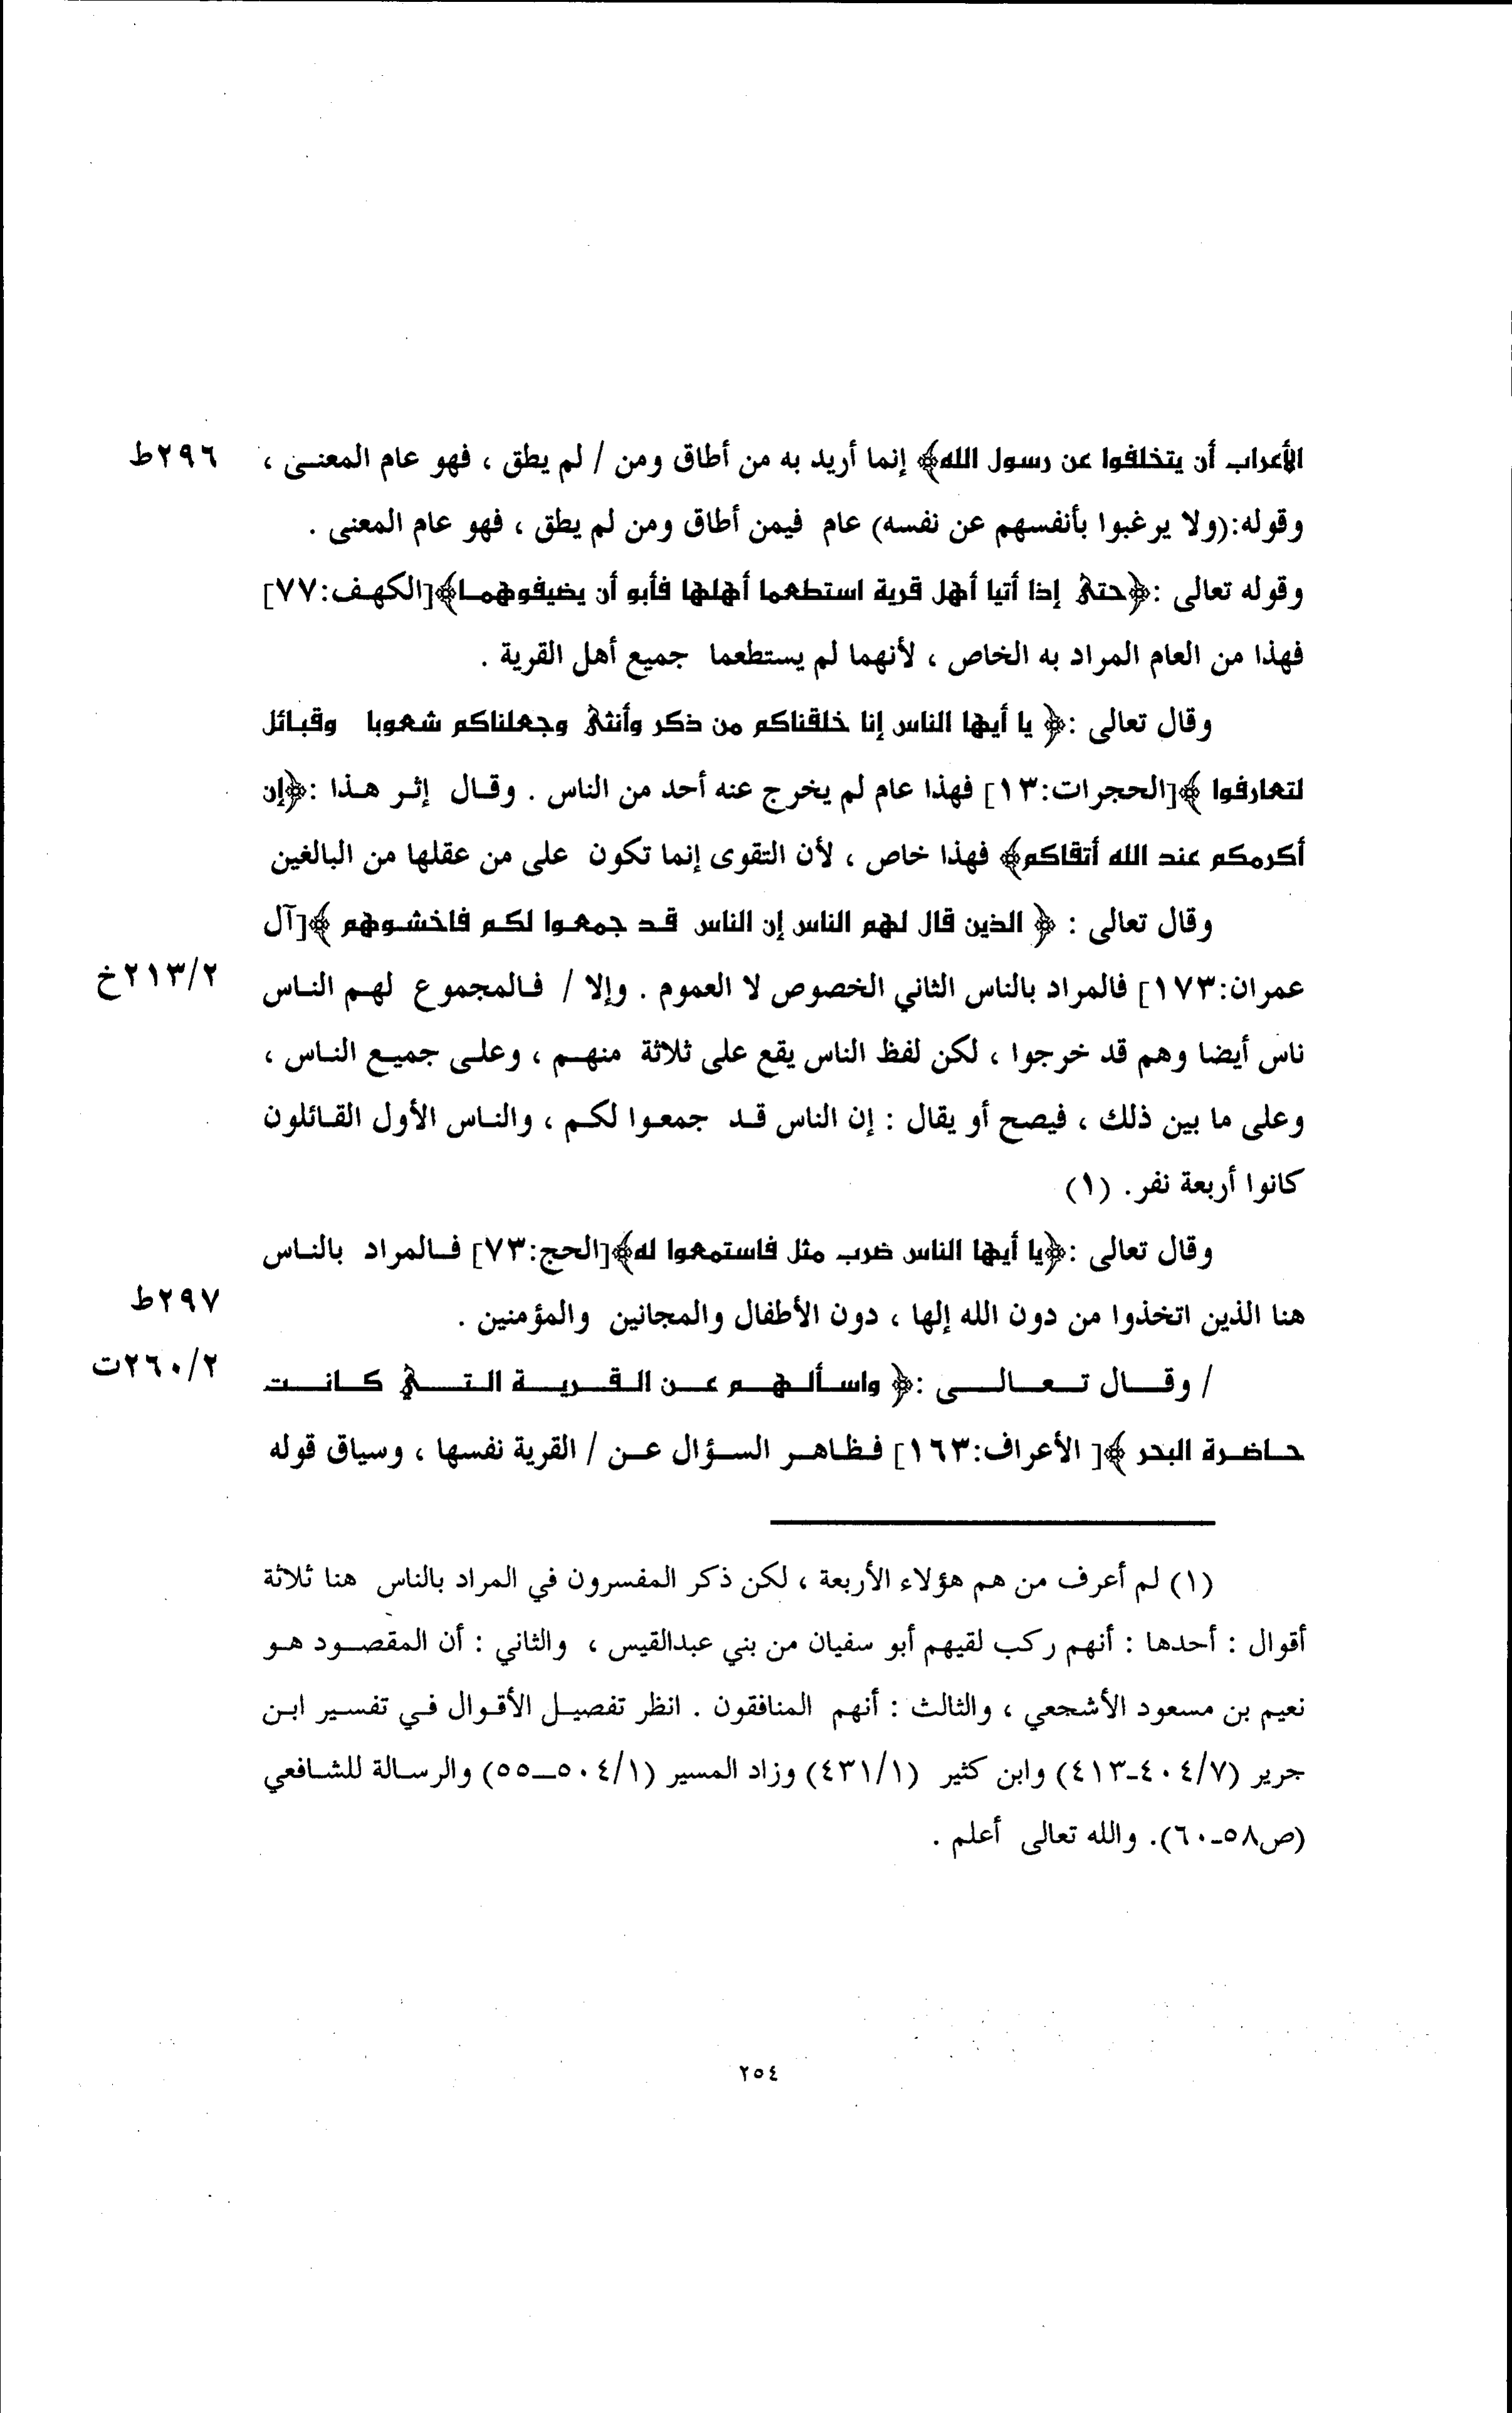 الأعراب أن يتخلفوا عن رسول الله﴾ إنما أريد به من أطاق ومن / لم يطق ، فهو عام المعنى ، ٢٩٦ط
وقوله:(ولا يرغبوا بأنفسهم عن نفسه) عام فيمن أطاق ومن لم يطق ، فهو عام المعنى .
وقوله تعالى :﴿حتى إذا أتيا أهل قرية استطعما أهلها فأبو أن يضيفوهما﴾[الكهف:٧٧]
فهذا من العام المراد به الخاص ، لأنهما لم يستطعما جميع أهل القرية .
وقال تعالى :﴿ يا أيها الناس إنا خلقناكم من ذكر وأنثى وجعلناكم شعوبا وقبائل
لتعارفوا ﴾[الحجرات:١٣] فهذا عام لم يخرج عنه أحد من الناس . وقال إثر هذا :﴿إن
أكرمكم عند الله أتقاكم﴾ فهذا خاص ، لأن التقوى إنما تكون على من عقلها من البالغين
وقال تعالى : ﴿ الذين قال لهم الناس إن الناس قد جمعوا لكم فاخشوهم ﴾[آل
عمران:١٧٣] فالمراد بالناس الثاني الخصوص لا العموم . وإلا / فالمجموع لهم الناس ٢١٣/٢خ
ناس أيضا وهم قد خرجوا ، لكن لفظ الناس يقع على ثلاثة منهم ، وعلى جميع الناس ،
وعلى ما بين ذلك ، فيصح أو يقال : إن الناس قد جمعوا لكم ، والناس الأول القائلون
كانوا أربعة نفر. (١)
وقال تعالى :﴿يا أيها الناس ضرب مثل فاستمعوا له﴾[الحج:٧٣] فالمراد بالناس
هنا الذين اتخذوا من دون الله إلها ، دون الأطفال والمجانين والمؤمنين . ٢٩٧ط
/ وقال تعالى :﴿ واسألهم عن القرية التي كانت ٢٦٠/٢ت
حاضرة البحر ﴾[ الأعراف:١٦٣] فظاهر السؤال عن / القرية نفسها ، وسياق قوله
(١) لم أعرف من هم هؤلاء الأربعة ، لكن ذكر المفسرون في المراد بالناس هنا ثلاثة
أقوال : أحدها : أنهم ركب لقيهم أبو سفيان من بني عبدالقيس ، والثاني : أن المقصود هو
نعيم بن مسعود الأشجعي ، والثالث : أنهم المنافقون . انظر تفصيل الأقوال في تفسير ابن
جرير (٤٠٤/٧-٤١٣) وابن كثير (٤٣١/١) وزاد المسير (٥٠٤/١-٥٥) والرسالة للشافعي
(ص٥٨-٦٠). والله تعالى أعلم .
٢٥٤